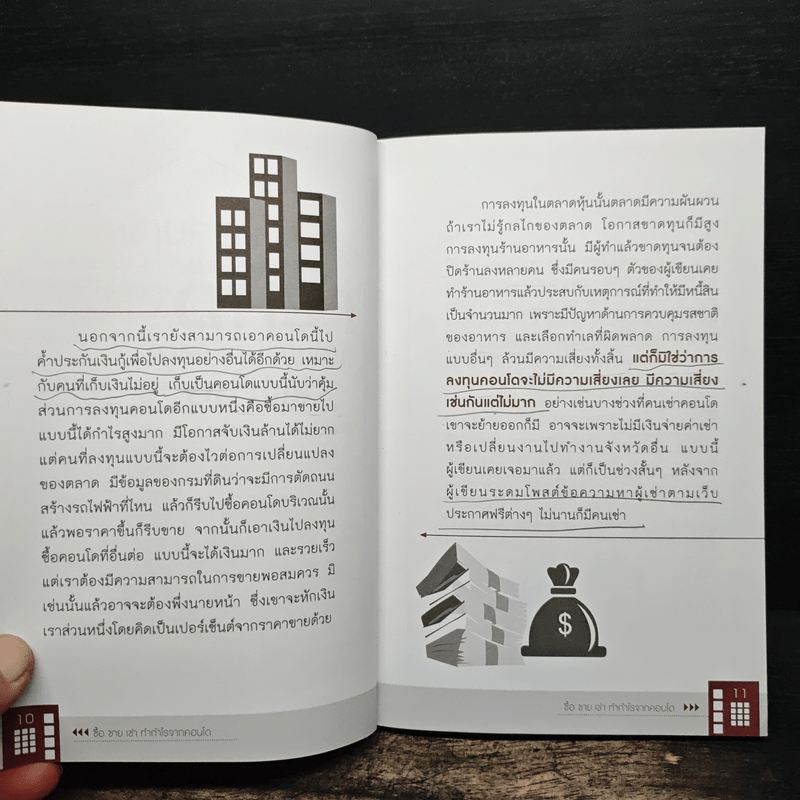 นอกจากนี้เรายังสามารถเอาคอนโดนี้ไป
ค้ำประกันเงินกู้เพื่อไปลงทุนอย่างอื่นได้อีกด้วย เหมาะ
กับคนที่เก็บเงินไม่อยู่ เก็บเป็นคอนโดแบบนี้นับว่าคุ้ม
ส่วนการลงทุนคอนโดอีกแบบหนึ่งคือซื้อมาขายไป
แบบนี้ได้กำไรสูงมาก มีโอกาสจับเงินล้านได้ไม่ยาก
แต่คนที่ลงทุนแบบนี้จะต้องไวต่อการเปลี่ยนแปลง
ของตลาด มีข้อมูลของกรมที่ดินว่าจะมีการตัดถนน
สร้างรถไฟฟ้าที่ไหน แล้วก็รีบไปซื้อคอนโดบริเวณนั้น
แล้วพอราคาขึ้นก็รีบขาย จากนั้นก็เอาเงินไปลงทุน
ซื้อคอนโดที่อื่นต่อ แบบนี้จะได้เงินมาก และรวยเร็ว
แต่เราต้องมีความสามารถในการขายพอสมควร มิ
เช่นนั้นแล้วอาจจะต้องพึ่งนายหน้า ซึ่งเขาจะหักเงิน
เราส่วนหนึ่งโดยคิดเป็นเปอร์เซ็นต์จากราคาขายด้วย
10
ซื้อ ขาย เช่า ทำกำไรจากคอนโด
การลงทุนในตลาดหุ้นนั้นตลาดมีความผันผวน
ถ้าเราไม่รู้กลไกของตลาด โอกาสขาดทุนก็มีสูง
การลงทุนร้านอาหารนั้น มีผู้ทำแล้วขาดทุนจนต้อง
ปิดร้านลงหลายคน ซึ่งมีคนรอบๆ ตัวของผู้เขียนเคย
ทำร้านอาหารแล้วประสบกับเหตุการณ์ที่ทำให้มีหนี้สิน
เป็นจำนวนมาก เพราะมีปัญหาด้านการควบคุมรสชาติ
ของอาหาร และเลือกทำเลที่ผิดพลาด การลงทุน
แบบอื่นๆ ล้วนมีความเสี่ยงทั้งสิ้น แต่ก็มิใช่ว่าการ
ลงทุนคอนโดจะไม่มีความเสี่ยงเลย มีความเสี่ยง
เช่นกันแต่ไม่มาก อย่างเช่นบางช่วงที่คนเช่าคอนโด
เขาจะย้ายออกก็มี อาจจะเพราะไม่มีเงินจ่ายค่าเช่า
หรือเปลี่ยนงานไปทำงานจังหวัดอื่น แบบนี้
ผู้เขียนเคยเจอมาแล้ว แต่ก็เป็นช่วงสั้นๆ หลังจาก
ผู้เขียนระดมโพสต์ข้อความหาผู้เช่าตามเว็บ
ประกาศฟรีต่างๆ ไม่นานก็มีคนเช่า
$
ซื้อ ขาย เช่า ทำกำไรจากคอนโด
11